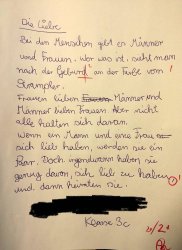 Die Liebe
Bei den Menschen gibt es Männer
und Frauen. Wer was ist, sieht man
nach der Geburd an der Farbe vom
Strampler.
Frauen lieben Männer und
Männer lieben Frauen. Aber nicht
alle halten sich daran.
Wenn ein Mann und eine Frau
sich lieb haben, werden sie ein
Paar. Doch irgendwann haben sie
genug davon, sich lieb zu haben
und dann heiraten sie.
Klasse 3c